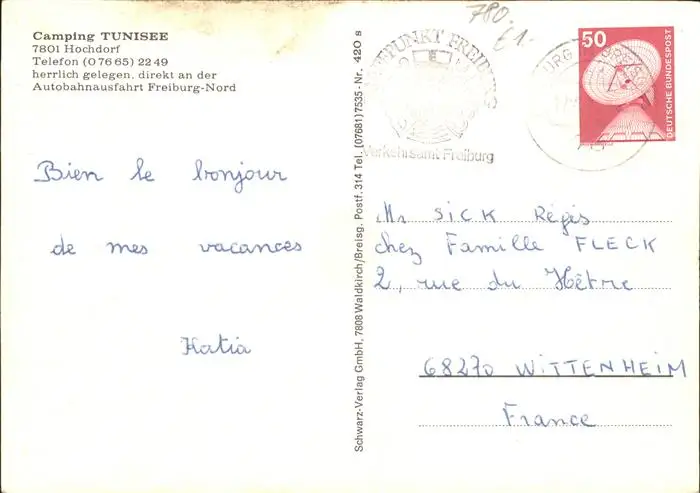 Camping TUNISEE
7801 Hochdorf
Telefon (0 76 65) 22 49
herrlich gelegen, direkt an der
Autobahnausfahrt Freiburg-Nord
Bien le bonjour
de mes vacances
Katia
Schwarz-Verlag GmbH, 7808 Waldkirch/Breisg. Postf. 314 Tel. (07681) 7535 - Nr. 420 s
780.
£1-
PUNKT FREIBURG
Verkehrsamt Freiburg
50
DEUTSCHE BUNDESPOST
Mr SICK Régis
chez Famille FLECK
2, rue du Hêtre
68270 WITTENHEIM
France